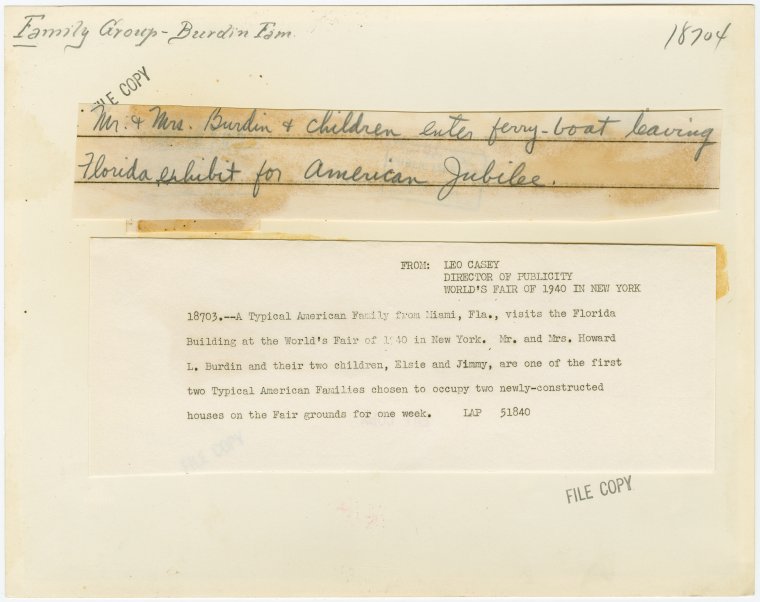 Family Group - Burdin Fam.
18704
FILE COPY
Mr. & Mrs. Burdin & children enter ferry-boat leaving
Florida exhibit for American Jubilee.
FROM: LEO CASEY
DIRECTOR OF PUBLICITY
WORLD'S FAIR OF 1940 IN NEW YORK
18703.--A Typical American Family from Miami, Fla., visits the Florida
Building at the World's Fair of 1940 in New York. Mr. and Mrs. Howard
L. Burdin and their two children, Elsie and Jimmy, are one of the first
two Typical American Families chosen to occupy two newly-constructed
houses on the Fair grounds for one week. LAP 51840
FILE COPY
FILE COPY